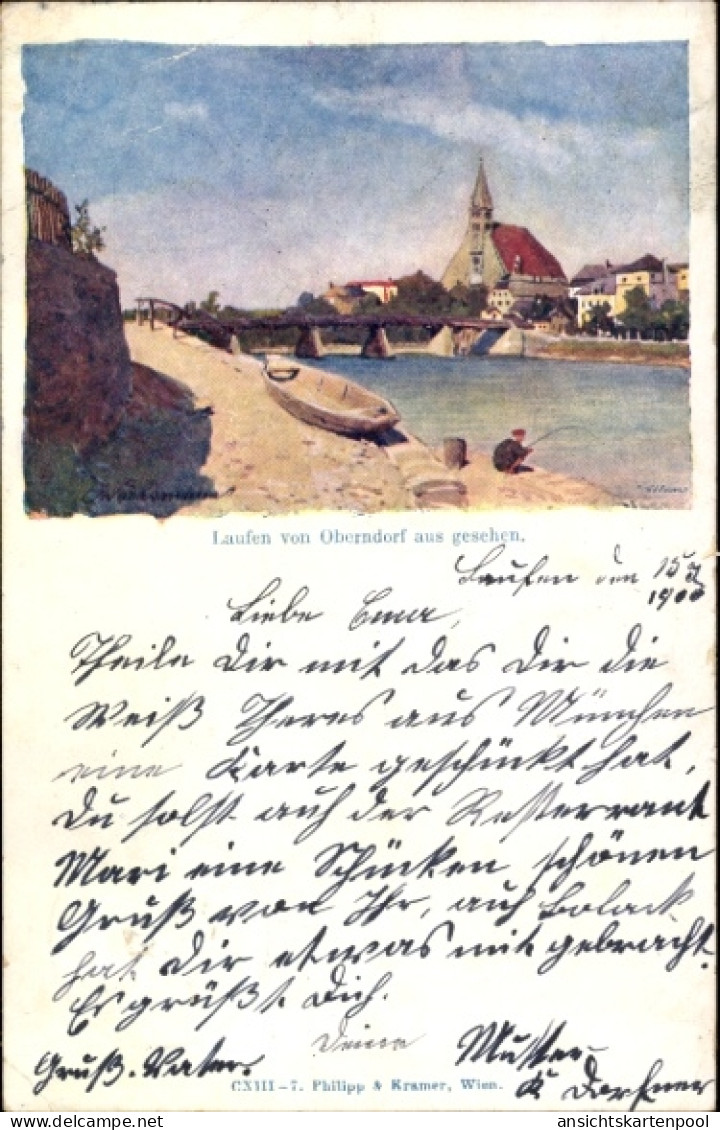 Laufen von Oberndorf aus gesehen.
Laufen den 15
1900
Liebe
Theile Dir mit das Dir die
Weiß Theres aus München
eine Karte geschückt hat,
Du solst auch der Resterrant
Mari eine Schücken schönen
Gruß von Ihr, auch
hat Dir etwas mit gebracht.
Es grüßt Dich.
Deine Mutter
Gruß. Vater.
CXIII-7. Philipp & Kramer, Wien.
https://www.delcampe.net
ansichtskartenpool